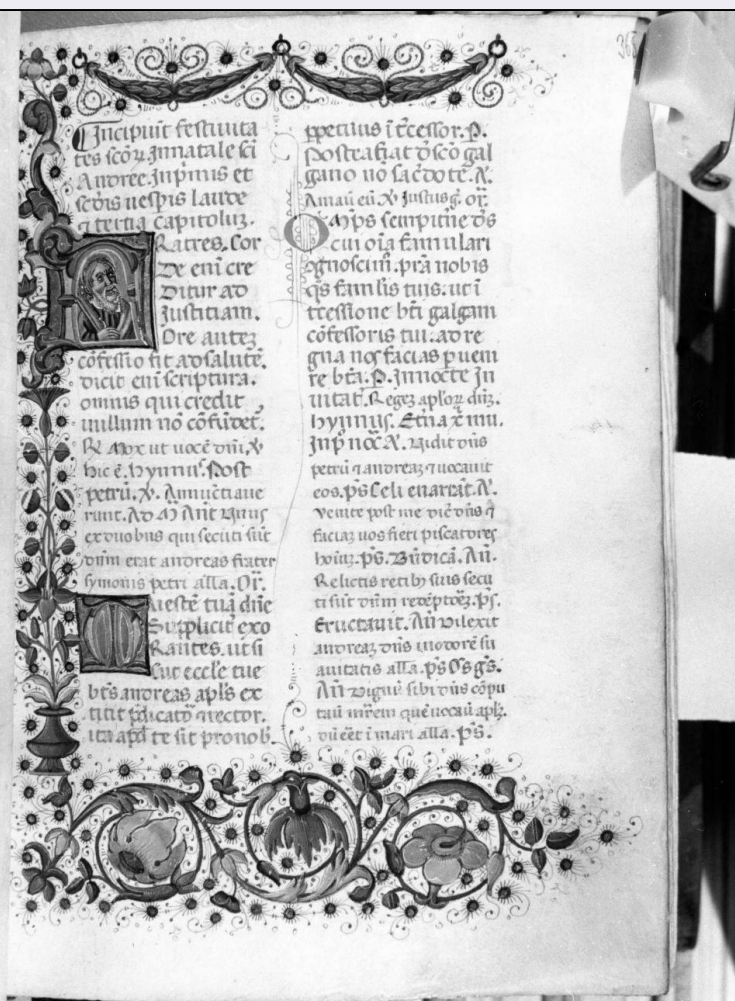 368
Incipiūt festivita
tes scōꝝ. In natale sci
Andree. In pimis et
scdis uespis laude
⁊ tertia capitoluz.
Fratres. Cor
de enī cre
ditur ad
Justitiam.
Ore autez
cōfessio fit ad salutē.
dicit enī scriptura.
omnis qui credit
in illum nō cōfūdet.
℞ Mox ut uocē dn̄i. ℣
hic ē. hymnus. Post
petrū. ℣. Annuntiaue
runt. Ad M̄ Ant̄ Unus
ex duobus qui secuti sūt
dn̄m erat andreas frater
symonis petri alla. Or̄.
Maiestē tuā dn̄e
Supplicit̄ exo
Ramus. ut si
cut eccl̄e tue
bt̄s andreas apl̄s ex
titit p̄dicator ⁊ rector.
ita apd̄ te sit pro nob̄.
ppetuus ītc̄essor. P.
Postea fiat d̄ scō gal
gano nō sacdote. A.
Amauit eū ℣ Justus g. or̄.
Omps sempit̄ne ds̄
cui oīa famulari
cognoscim̄. p̄ra nobis
qs̄ famlis tuis. ut ī
tcessione bt̄i galgani
cōfessoris tui. ad re
gna nos facias puem
re bt̄a. P. In nocte In
uitat. Regez apl̄oꝝ dn̄z.
hymnus. Etn̄a x̄ mu.
In p̄ noc̄ A. Uidit dn̄s
petrū ⁊ andreaz ⁊ uocauit
eos. ps̄ Celi enarrāt. A.
Uenite post me dic̄ dn̄s ⁊
faciaz uos fieri piscatores
hoīuz. ps̄. Bn̄dicā. An̄.
Relictis retib̄ suis secu
ti sūt dn̄m redēptorez. ps̄.
Eructauit. An̄ Dilexit
andreaz dn̄s in odorē su
auitatis alla. ps̄ Os̄ gs̄.
An̄ Dignū sibi dn̄s cōpu
tauit mr̄em quē uocauit apl̄z.
dū eēt ī mari alla. ps̄.